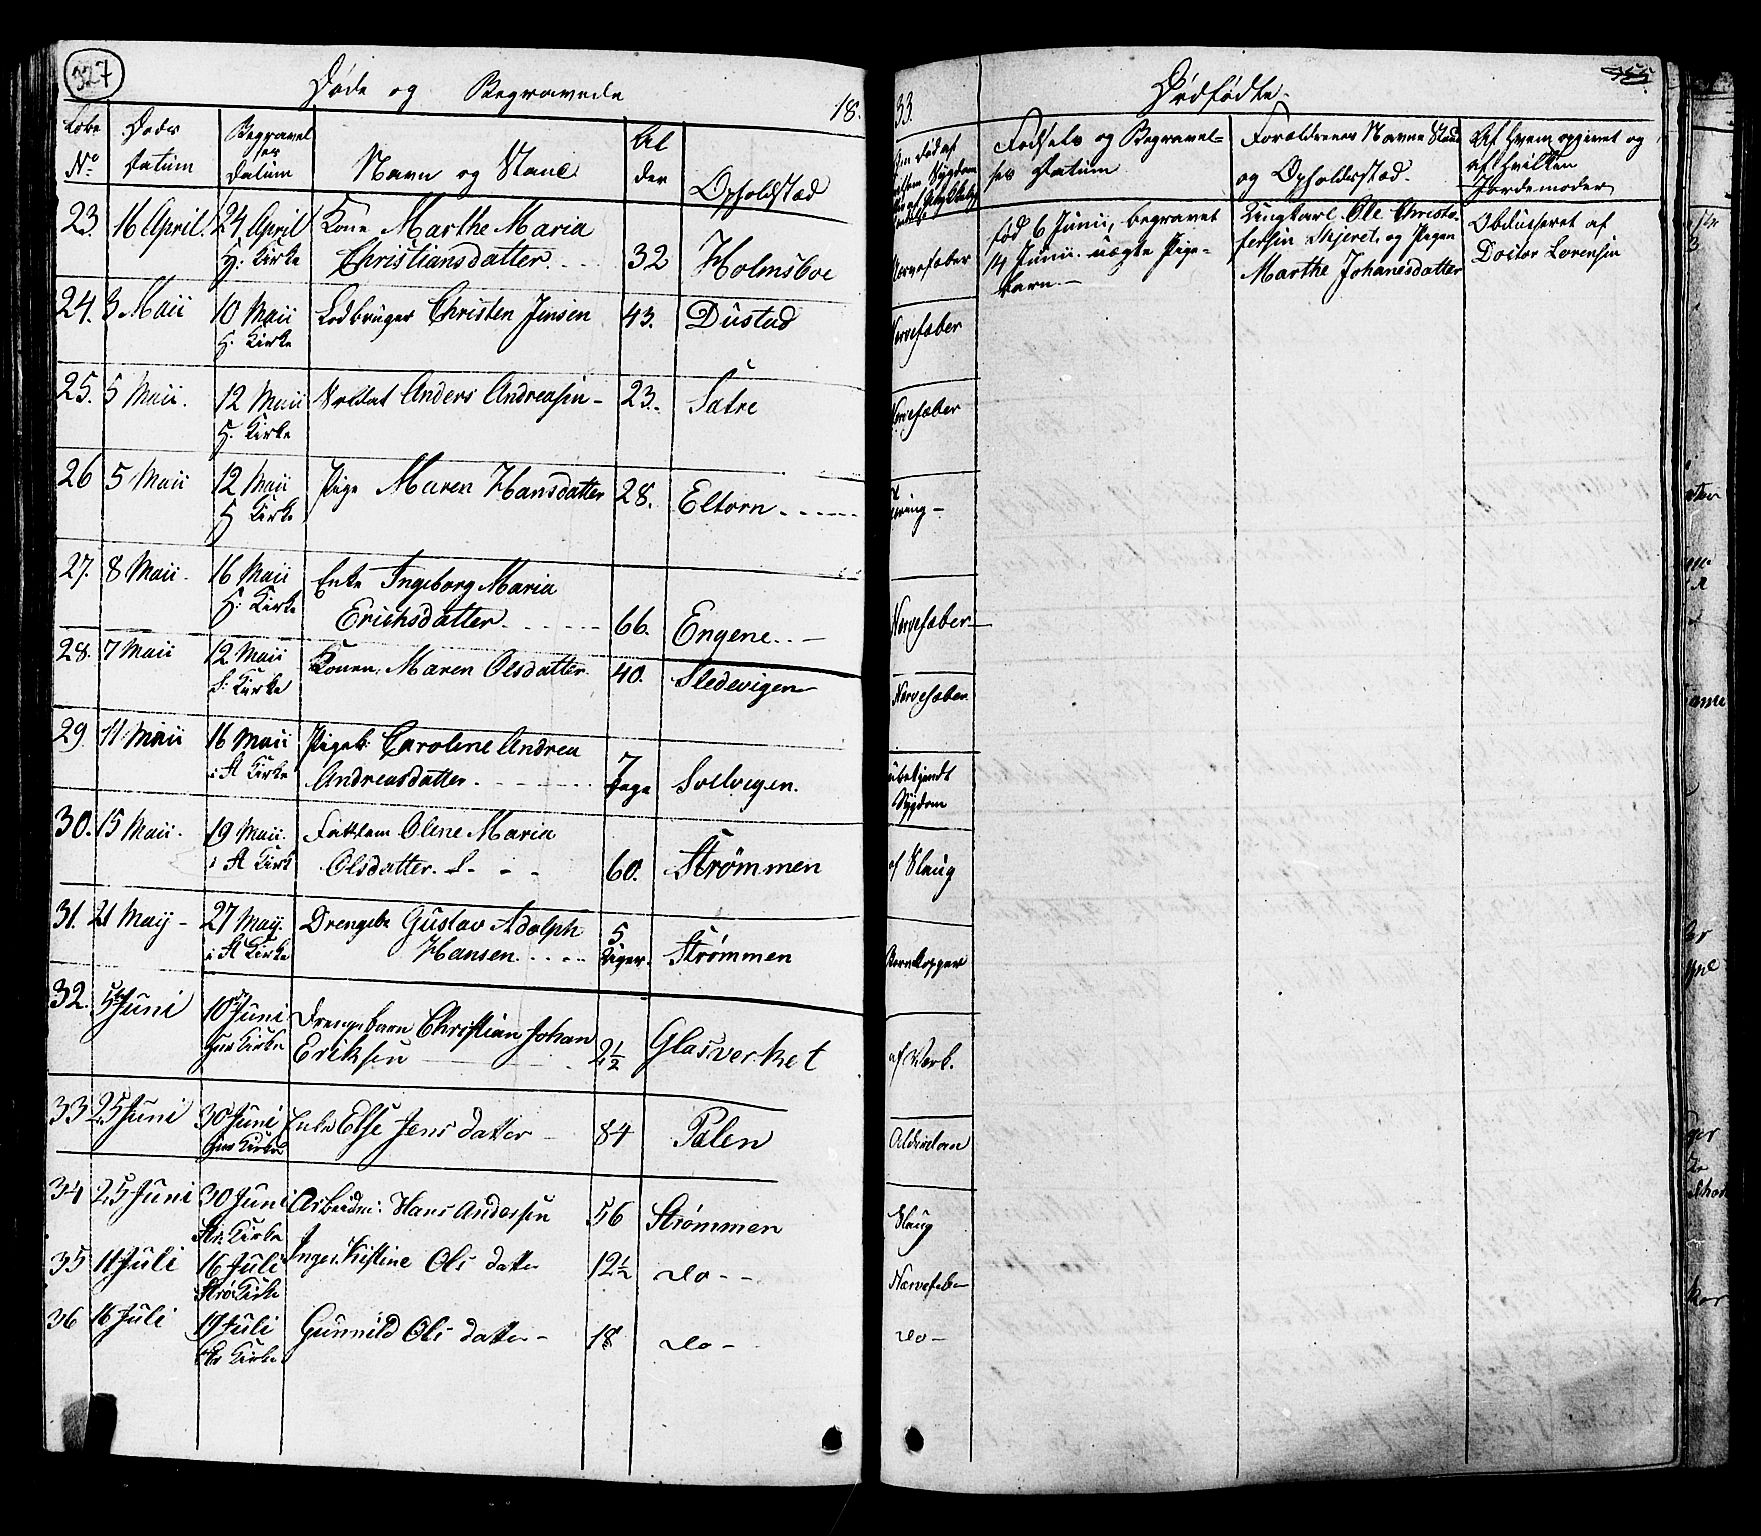 327
Døde og Begravede
18
Løbe No
Døds Datum
Begravelses Datum
Navn og Stand
Alder
Opholdstæd
23. 16 April. 24 April H: Kirke Kone Marthe Maria Christiansdatter. 32 Holmsboe
24. 3 Maii 10 Maii H: Kirke Lodbruger Christen Jensen 43. Dustad
25. 5 Maii. 12 Maii H. Kirke Anders Andreasen - 23. Satre
26 5 Maii 12 Maii H Kirke Pige Maren Hansdatter 28. Eltorn
27. 8 Maii. 16 Maii H: Kirke Enke Ingeborg Maria Erichsdatter. 66. Engene
28. 7 Maii 12 Maii S: Kirke Konen Maren Olsdatter 40. Sledevigen
29. 11 Maii 16 Maii i St Kirke Pigeb: Caroline Andrea Andreasdatter. 7 Dage Solvigen.
30. 15 Maii. 19 Maii. i St Kirk Fattlem Olene Maria Olsdatter. 60. Strømmen
31. 21 Maij - 27 Maij. i St Kirke Drengeb Gustav Adolph Hansen. 5 Uger. Strømmen
32. 5te Juni 10de Juni Kirke Drengebarn Christian Johan Eriksen 2½ Glasverket
33 25 Juni 30 Juni Kirke Enke Else Jens datter 84 Palen
34 25 Juni 30 Juni Str: Kirke Arbeidm: Hans Andersen 56 Strømmen
35 11 Juli 16 Juli Strø Kirke Inger Kistine Ols datter 12½ do - -
36 16 Juli 19 Juli Str Kirke Gunnild Ols datter - 18 do -
33.
Dødfødte.
455
Fødsels og Begravelses Datum
Forældrenes Navne Stand og Opholdsstæd.
Af hvem opgivet og af hvilken Jordemoder
Nervefeber
født 6 Junii, begravet 14 Junii. uægte Pigebarn. -
Ungkarl Ole Christofersen Skjeret, og Pigen Marthe Johanesdatter
Obduceret af Doctor Lorensen
Nervefeber
Nervefeber
Nervefeber
Nervefeber
ubekjendt Sygdom
af Slaug
Barnekopper
af Værk.
Alderdom
Slaug
Nervefeber
do -